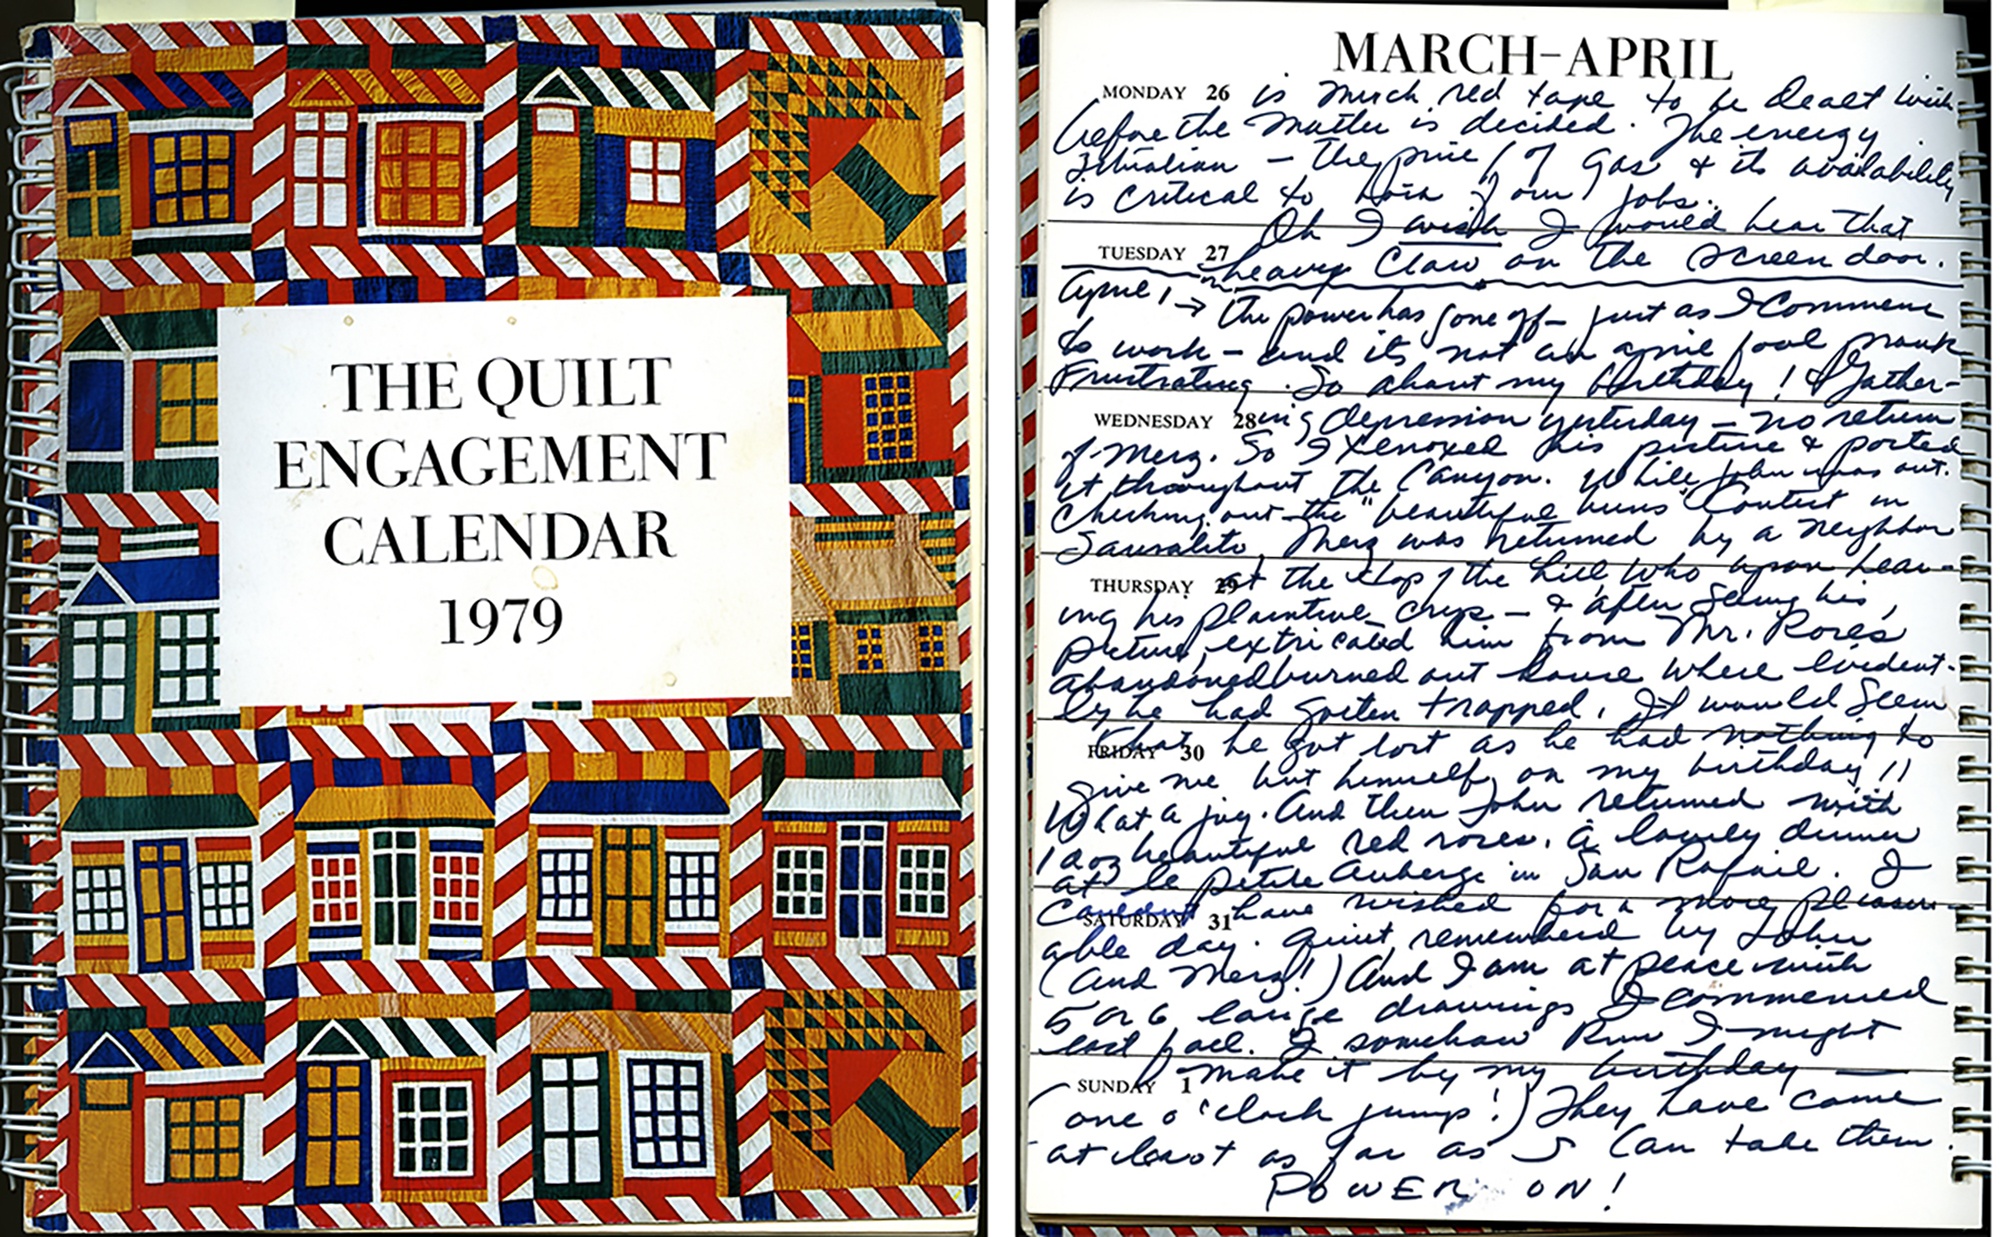 THE QUILT
ENGAGEMENT
CALENDAR
1979
MARCH–APRIL
MONDAY 26 is much red tape to be dealt with
before the matter is decided. The energy
situation – the price of gas & its availability
is critical to both of our jobs.
Oh I wish I would hear that
TUESDAY 27 heavy claw on the screen door.
April 1 → The power has gone off – just as I commence
to work – and its not an april fool prank
Frustrating. So about my birthday! A gather-
WEDNESDAY 28 ing depression yesterday – no return
of Merz. So I xeroxed his picture & posted
it throughout the Canyon. While John was out
checking out the "beautiful buns" Contest in
Sausalito, Merz was returned by a neighbor
THURSDAY 29 at the top of the hill who upon hear-
ing his plaintive crys – & after seeing his
picture, extricated him from Mr. Rore's
abandoned burned out house where evident-
ly he had gotten trapped. It would seem
FRIDAY 30 that he got lost as he had nothing to
give me but himself on my birthday!!
What a joy. And then John returned with
1 doz beautiful red roses. A lovely dinner
at le Petite Auberge in San Rafail. I
SATURDAY 31 couldn't have wished for a more pleasur-
able day. Quiet, remembered by John
(and Merz!) And I am at peace with
5 or 6 large drawings I commenced
last fall. I somehow knew I might
SUNDAY 1 make it by my birthday –
(one o'clock jump!) They have come
at least as far as I can take them.
POWER ON!